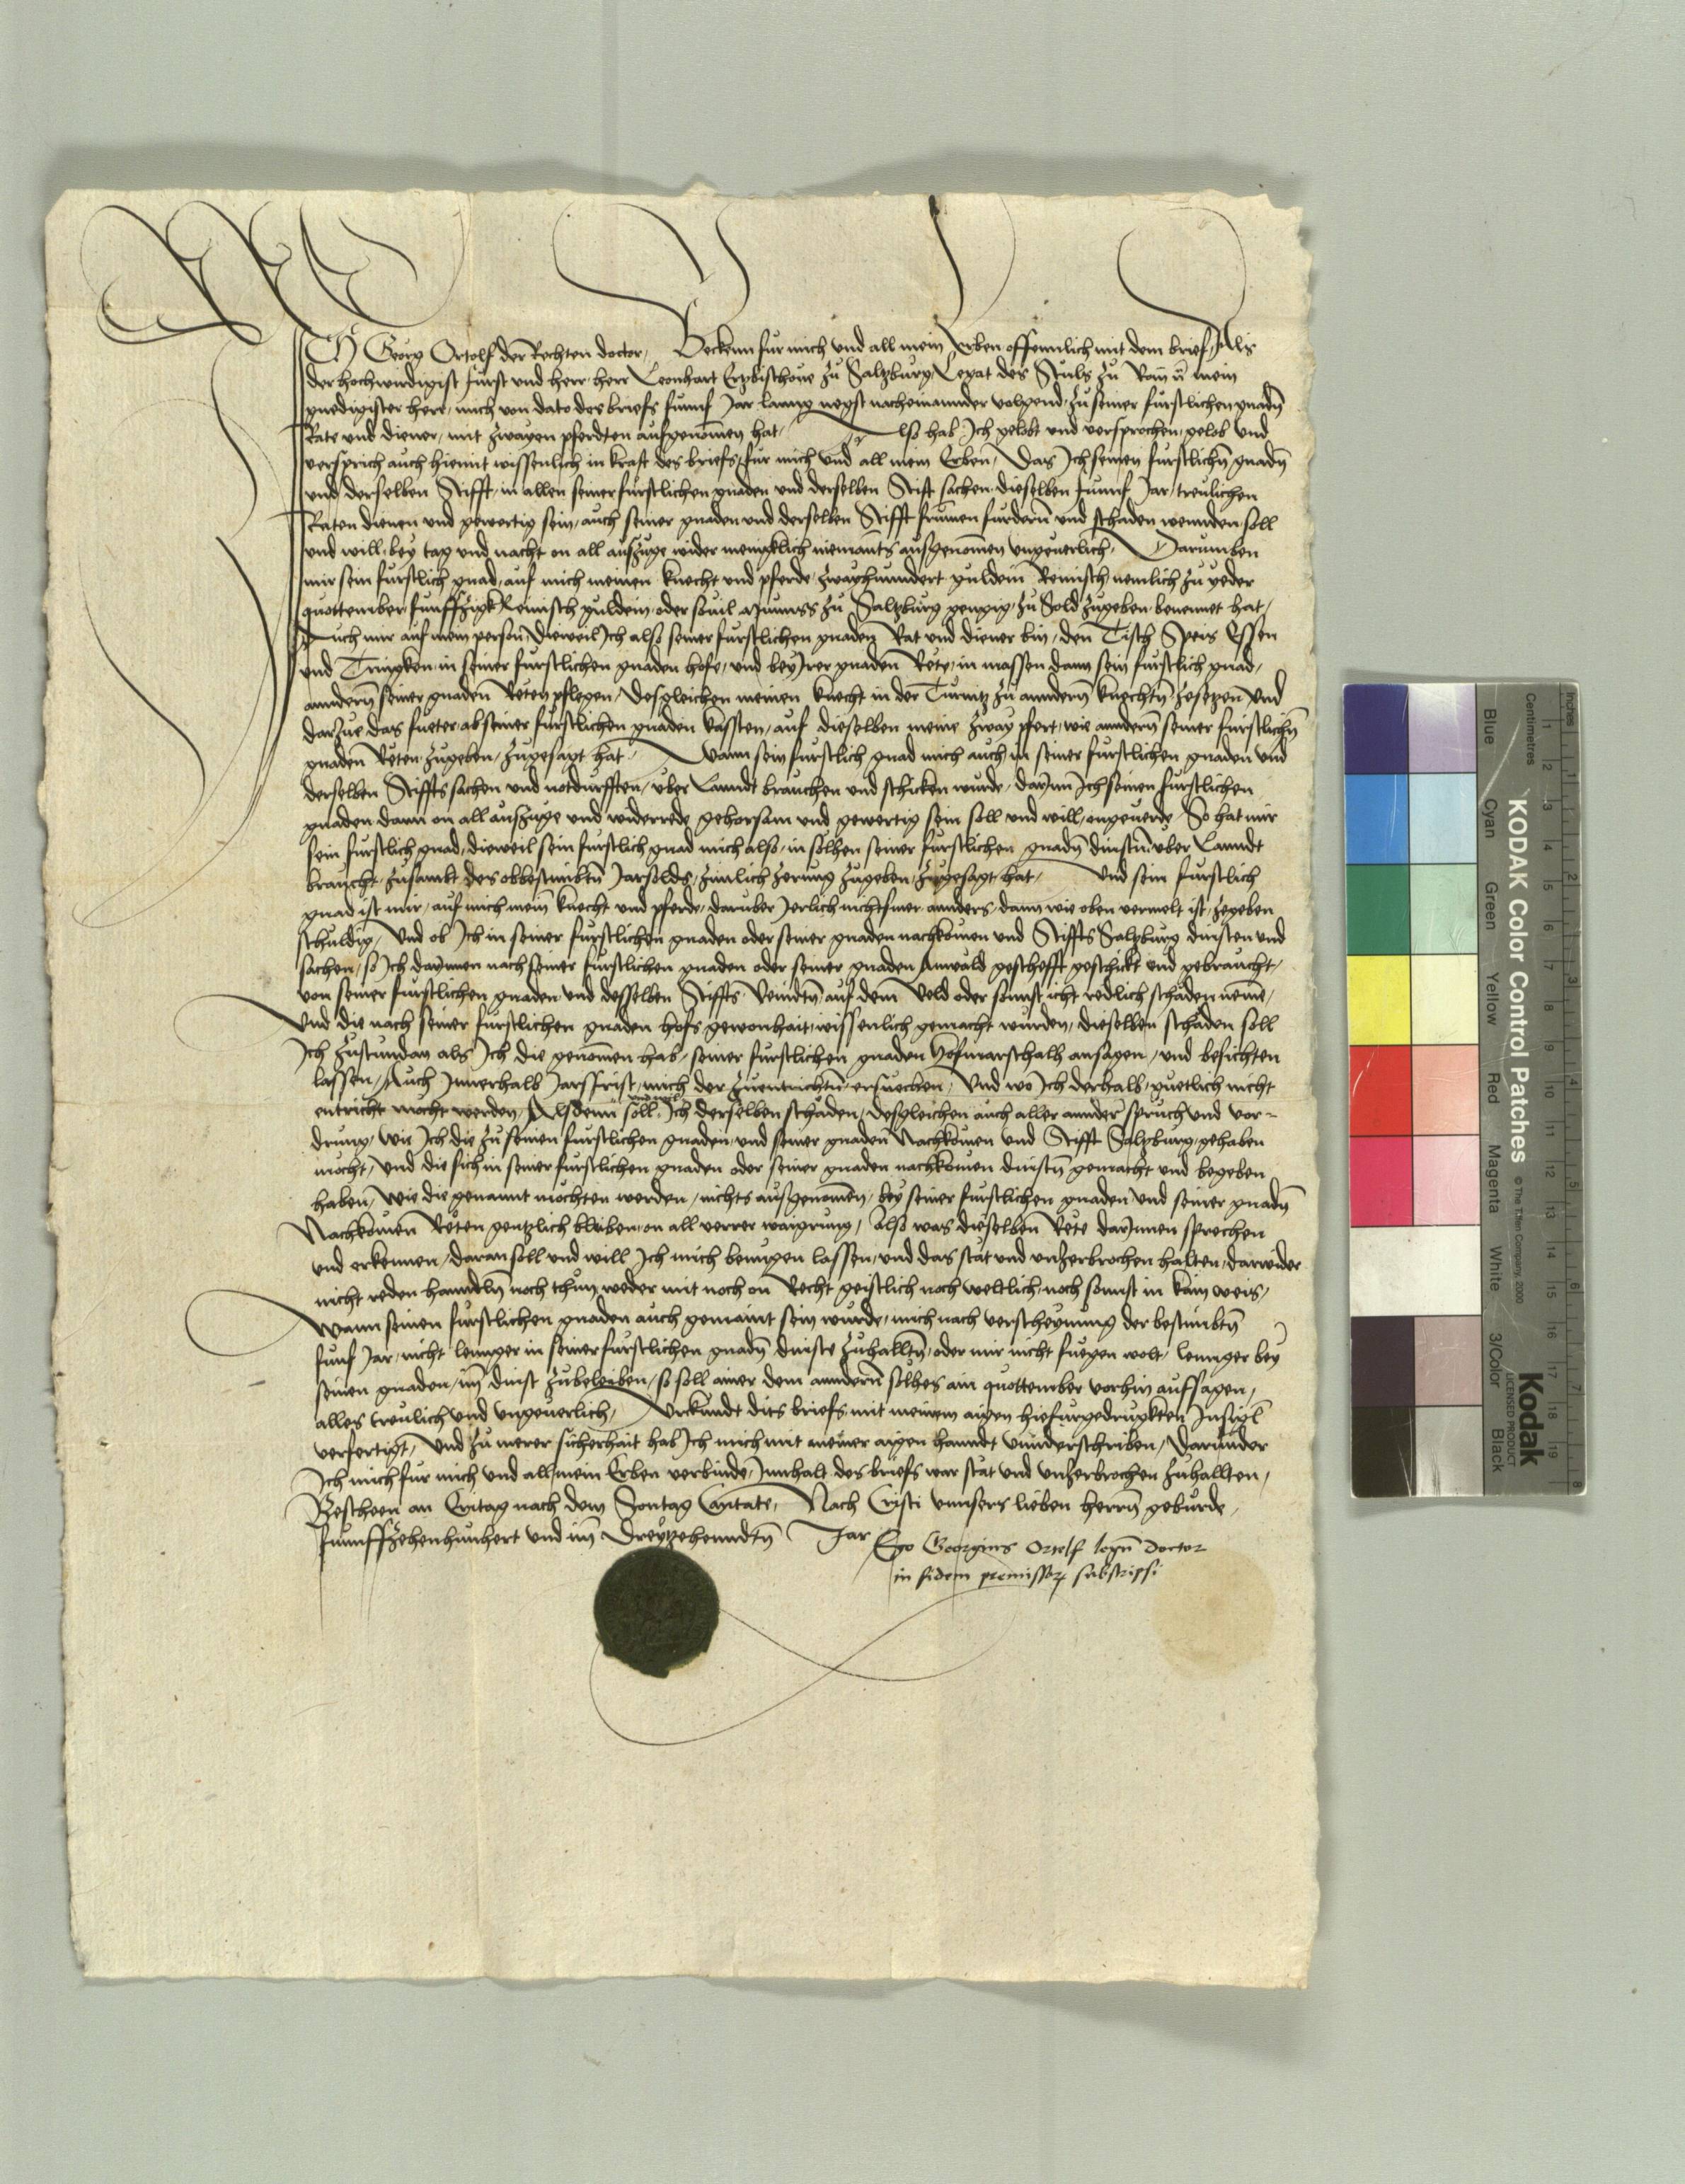 ICH Georg Ortolf der Rechten doctor, Bekenn fur mich und all mein Erben offennlich mit dem brief, Als
der hochwirdigist Furst und herr, herr Leonhart Ertzbischove zu Saltzburg, Legat des Stuls zu Rom ~~ mein
gnedigister herr, mich von dato des briefs funnf Jar lanng negst nacheinannder volgend, zu seiner furstlichen gnadn̄
Rate und diener, mit zwayen pferdten aufgenomen hat, Also hab Ich gelobt und versprochen, gelob und
versprich auch hiemit wissenlich in kraft des briefs, fur mich und all mein Erben, Das Ich seinen furstlichn̄ gnadn̄
und derselben Stifft, in allen seiner furstlichen gnaden und derselben Stift sachen, dieselben funnf Jar, treulichen
Raten dienen und gewertig sein, auch seiner gnaden und derselben Stifft frumen furdern̄ und schaden wennden soll
und will, bey tag und nacht on all auszuge wider menigklich niemants ausgenomen ungeverlich, Darumben
mir sein furstlich gnad, auf mich meinen knecht und pferde, zwayhundert guldein Reinisch nemlich zu yeder
quottember, funffzigk Reinisch guldein, oder sovil Munnss zu Saltzburg genngig, zu Sold zugeben, benennet hat,
Auch mir auf mein person, dieweil Ich also seiner furstlichen gnaden Rat und diener bin, den Tisch Speis Essen
und Tringken, in seiner furstlichen gnaden hofe, und bey Irer gnaden Rete, in massen dann sein furstlich gnad,
anndern̄ seiner gnaden Reten pflegen, desgleichen meinen knecht in der Turnitz zu anndern̄ knechtn̄ zesetzen und
darzue das fueter, ab seiner furstlichen gnaden kassten, auf dieselben meine zway pfert, wie anndern̄ seiner furstlichn̄
gnaden Reten zugeben, zugesagt hat, Wann sein furstlich gnad mich auch in seiner furstlichen gnaden und
derselben Stiffts sachen und notdurfften, uber Lanndt brauchen und schicken wurde, darinn Ich seinen furstlichen
gnaden dann on all auszuge und widerrede gehorsam und gewertig sein soll und will, ongeverde, So hat mir
sein furstlich gnad, dieweil sein furstlich gnad mich also, in solhen seiner furstlichen gnadn̄ dinstn̄, uber Lanndt
braucht, zusambt des obbestimbtn̄ Jarsolds, zimlich zerung zugeben, zugesagt hat, Und sein furstlich
gnad ist mir, auf mich mein knecht und pferde, daruber Jerlich nichts mer annders, dann wie oben vermelt ist, zegeben
schuldig, Und ob Ich in seiner furstlichen gnaden oder seiner gnaden nachkomen und Stiffts Saltzburg dinsten und
sachen, so Ich darinnen nach seiner furstlichen gnaden oder seiner gnaden Anwäld geschefft geschickt und gebraucht,
von seiner furstlichen gnaden und desselben Stiffts Veindtn̄ auf dem Veld oder sonnst icht redlich schäden neme,
Und die nach seiner furstlichen gnaden hofs gewonhait, wissenlich gemacht wurden, dieselben schäden soll
Ich zustundan als Ich die genomen hab, seiner furstlichen gnaden Hofmarschalh ansagen, und besichten
lassen, Auch Innerhalb Jarsfrist, mich der zuentrichtn̄ ersuechen, Und wo Ich derhalb, guetlich nicht
entricht mocht werden, Alsdenn soll und will Ich derselben schäden, desgleichen auch aller annder spruch und vor-
drung, wie Ich die zu seinen furstlichen gnaden, und seiner gnaden Nachkomen und Stifft Saltzburg, gehaben
mocht, Und die sich in seiner furstlichen gnaden oder seiner gnaden nachkomen dinstn̄ gemacht und begeben
haben, wie die genannt mochten werden, nichts ausgenomen, bey seiner furstlichen gnaden und seiner gnadn̄
Nachkomen Reten genntzlich bleiben, on all verrer waigrung, Also was dieselben Rete darinnen sprechen
und erkennen, daran soll und will Ich mich benugen lassen, und das stät und unzerbrochen halten, darwider
nicht reden hanndln̄ noch thun, weder mit noch on Recht geistlich noch weltlich, noch sonnst in kain weis,
Wann seinen furstlichen gnaden auch gemaint sein wurde, mich nach verscheynung der bestimbtn̄
funf Jar, nicht lennger in seiner furstlichen gnadn̄ dinste zuhalltn̄, oder mir nicht fuegen wolt, lennger bey
seinen gnaden, im dinst zubeleiben, so soll ainer dem anndern̄ solhes ain quottember vorhin aufsagen,
alles treulich und ungeverlich, Urkundt dits briefs mit meinem aigen hiefurgedrugkten Insigl
verfertigt, Und zu merer sicherhait hab Ich mich mit meiner aigen hanndt unnderschriben, Darunder
Ich mich fur mich und all mein Erben verbinde, Innhalt des briefs war stät und unzerbrochen zuhallten,
Bescheen an Eritag nach dem Sontag Cantate, Nach Cristi unnsers lieben herrn̄ geburde,
funnffzehenhundert und im Dreytzehenndtn̄ Jar
Ego Georgius Ortolf legū doctor
in fidem premissoꝝ subscripsi
KODAK Color Control Patches
Kodak
LICENSED PRODUCT
© The Tiffen Company, 2000
Blue Cyan Green Yellow Red Magenta White 3/Color Black
Centimetres 1 2 3 4 5 6 7 8 9 10 11 12 13 14 15 16 17 18 19
Inches 1 2 3 4 5 6 7 8